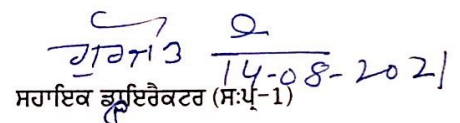 14-08-2021
ਸਹਾਇਕ ਡਾਇਰੈਕਟਰ (ਸ:ਪ੍ਰ-1)